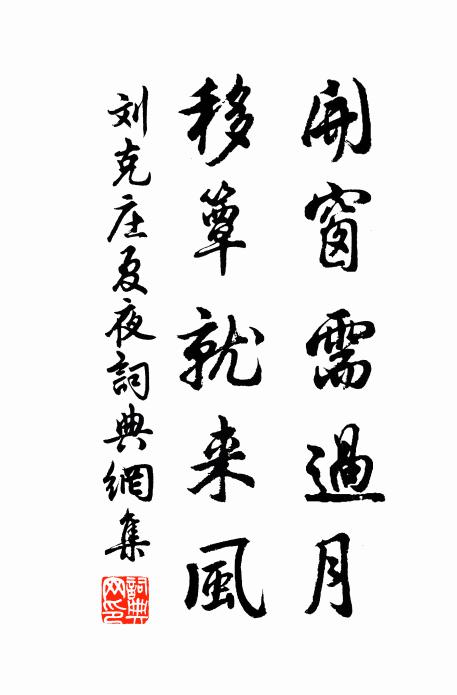 開窗需過月
移簟就来風
刘克庄夏夜詞典網集
詞典網印